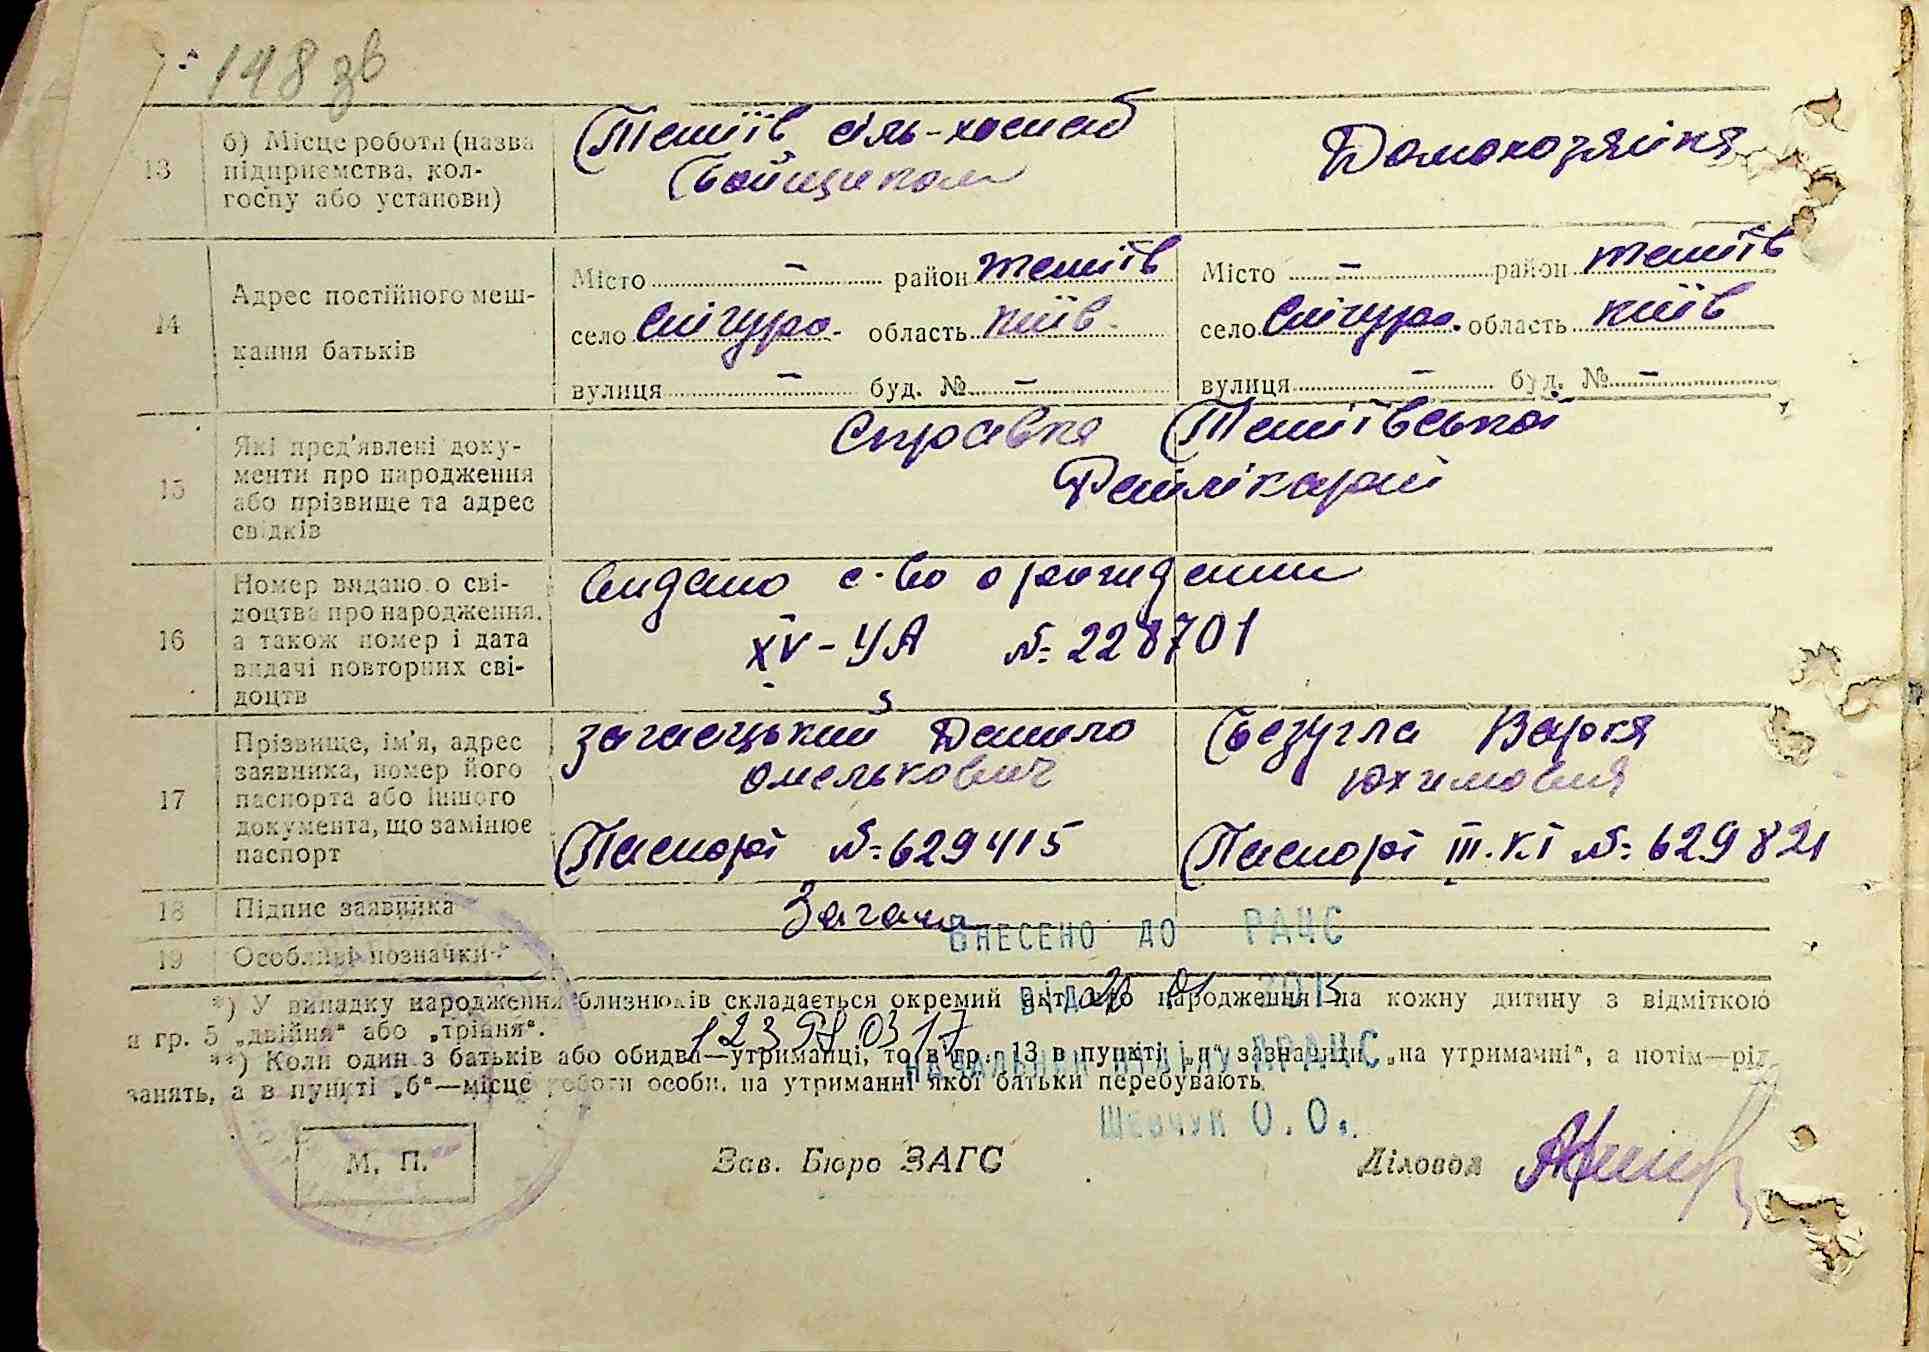 148 зв
13
б) Місце роботи (назва підприємства, колгоспу або установи)
Тетіїв сіль-хоснаб
Бойщиком
Домохозяйка
14
Адрес постійного мешкання батьків
Місто – район Тетіїв
село Снігура. область Київ.
вулиця – буд. № –
Місто – район Тетіїв
село Снігура. область Київ
вулиця – буд. № –
15
Які пред'явлені документи про народження або прізвище та адрес свідків
Справка Тетіївської
Райлікарні
16
Номер виданого свідоцтва про народження, а також номер і дата видачі повторних свідоцтв
Видано с-во о рождении
XV-УА № 228701
17
Прізвище, ім'я, адрес заявника, номер його паспорта або іншого документа, що замінює паспорт
Загаецький Данило
Омелькович
Паспорт № 629415
Безугла Варка
Юхимовна
Паспорт III.КІ № 629821
18
Підпис заявника
Загаец
19
Особливі позначки
ВНЕСЕНО ДО РАЦС
*) У випадку народження близнюків складається окремий акт про народження на кожну дитину з відміткою
в гр. 5 „двійня“ або „трійня“.
**) Коли один з батьків або обидва—утриманці, то в гр. 13 в пункті „а“ зазначити „на утриманні“, а потім—рід
занять, а в пункті „б“—місце роботи особи, на утриманні якої батьки перебувають.
НАЧАЛЬНИК ВІДДІЛУ ДРАЦС
Шевчук О.О.
М. П.
Зав. Бюро ЗАГС
Діловод